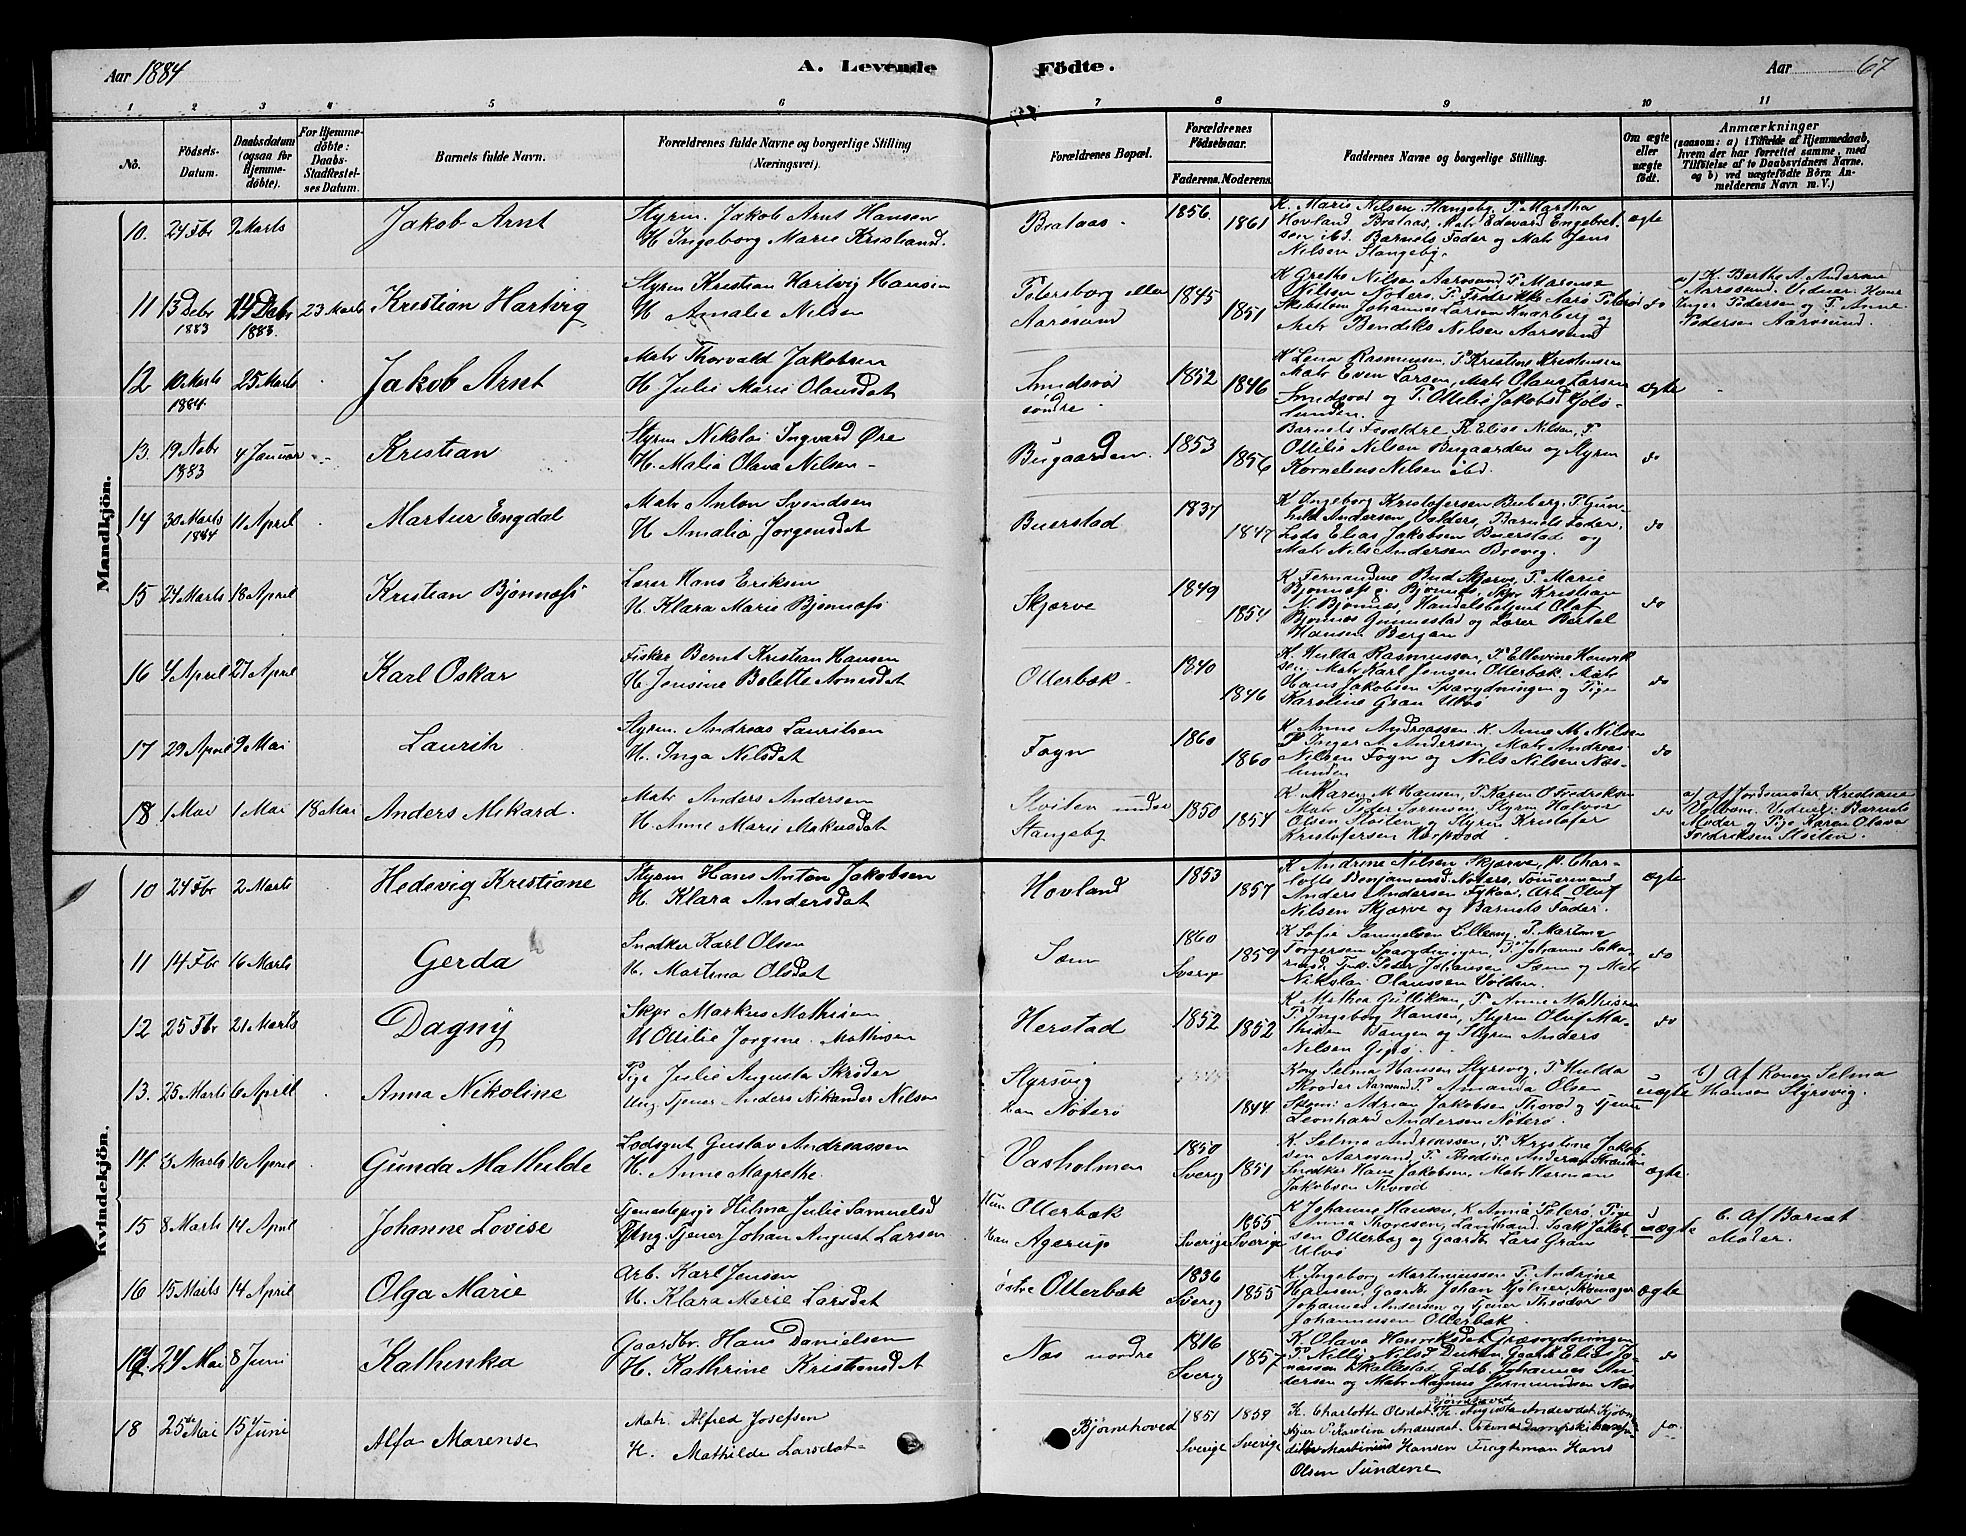 Aar 1884
A. Levende
Födte.
Aar 67
1 2 3 4 5 6 7 8 9 10 11
No.
Födsels-Datum.
Daabsdatum (ogsaa for Hjemmedöbte).
For Hjemmedöbte: Daabs-Stadfestelses Datum.
Barnets fulde Navn.
Forældrenes fulde Navne og borgerlige Stilling (Næringsvei).
Forældrenes Bopæl.
Forældrenes Födselsaar. Faderens. Moderens.
Faddernes Navne og borgerlige Stilling.
Om ægte eller uægte födt.
Anmærkninger (saasom: a) i Tilfælde af Hjemmedaab, hvem der har forrettet samme, med Tilföielse af to Daabsvidners Navne. og b) ved uægtefödte Börn Anmelderens Navn m. V.)
Mandkjön.
10. 24 Fbr 2 Marts Jakob Arnt
Styrm. Jakob Arnt Hansen
H. Ingeborg Marie
Brataas. 1856 1861
K. Marie Nilsen Stangeby, P. Martha
Hovland Brataas, Matr Edevard Engebret-
sen ibd. Barnets Fader og Matr Jens
Nilsen Stangeby.
ægte
11 13 Debr 1883 14 Debr 1883. 23 Marts Kristian Hartvig
Styrm Kristian Hartvig Hansen
H Amalie Nilsen
Petersborg eller
Aarosund 1845 1851
K Grethe Nilsen Aarosund P. Marense
Nilsen Noterø, P. Fredrikke Aarø Peterø
Johannes Larsen Knarberg og
Matr Bendiks Nilsen Aarosund
do
a) K. Berthe A. Andersen
Aarosund. Vidner: Kone
Inger Pedersen og P. Anne
Pedersen Aarosund.
12 10 Marts 1884. 25 Marts Jakob Arnt
Matr Thorvald Jakobsen
H. Julie Marie Olausdat
Smidsrød
søndre 1852 1846
K Lena Rasmussen, P Kristine Kristensen
Matr Even Larsen, Matr Olaus Larsen
Smedsrød og P. Ottilie Jakobsd
ægte
13. 19 Nobr 1883 4 Januar Kristian
Styrm Nikolai Ingvard Øre
H. Malia Olava Nilsen
Bugaarden. 1853 1856
Barnets Forældre, K. Elise Nilsen, P
Ottilie Nilsen Bugaarden og Styrm
Kornelius Nilsen ibd.
do
14 30 Marts 1884 11 April Martur Engdal
Matr Anton Svendsen
H Amalia Jørgensdat
Buerstad 1837 1847
K Ingeborg Kristofersen Buberg, P Gun-
hild Andersen Valders, Barnets Fader,
Lods Elias Jakobsen Buerstad og
Matr Nils Andersen Brevig.
do
15 24 Marts 18 April Kristian Bjønnæss
Lærer Hans Eriksen
H. Klara Marie Bjønnæss
Skjærve 1849 1854
K. Fernandine Bud Skjærve, P. Marie
Bjønnæss, Skpr Kristian
N. Bjønnæs, Handelsbetjent Olaf
Bjønnæs Gunnestad og Lærer Bertel
Hansen Bergan
do
16 4 April 27 April Karl Oskar
Fisker Bernt Kristian Hansen
H. Jensine Bolette Arnesdat
Otterbæk. 1840 1846
K. Hulda Rasmussen, P. Ellevine Henrik-
sen. Matr Karl Jensen Otterbæk, Matr
Hans Jakobsen Sparydningen og Pige
Karoline Gran Ulvø
do
17 29 April 9 Mai Laurits
Styrm. Andreas Lauritsen
H. Inga Nilsdat
Fogn 1860 1860
K Anne Andreassen, K. Anne M. Nilsen
P Inger A Andersen, Matr Andreas
Nilsen Fogn og Nils Nilsen Næs-
lunden
do
18. 1 Mai 1 Mai 18 Mai Anders Mikard.
Matr Anders Andersen
H. Anne Marie Makusdat
Stoiten under
Stangeby 1850 1854
K. Maren M Hansen, P. Karen O Fredriksen
Matr Peder Sørensen, Styrm Halvor
Olsen Stoiten og Styrm Kristofer
Kristofersen Torpood
do
a) af Jordemoder Kristiane
Vidner: Barnets
Moder og Pige Karen Olava
Fredriksen Stoiten.
Kvindekjön.
10 24 Fbr 2 Marts Hedevig Kristiane
Styrm Hans Anton Jakobsen
H. Klara Andersdat
Hovland 1853 1857
K Andrine Nilsen Skjærve, P. Char-
lotte Benjaminsd Nøterø, Tømmermand
Anders Andersen, Arb. Oluf
Nilsen Skjærve og Barnets Fader.
ægte
11 14 Fbr 16 Marts Gerda
Snedker Karl Olsen
H. Martina Olsdat
Sem 1860 Sverige 1859
K Sofie Samuelsen, P. Martine
Torgersen Sparydningen, P. Johanne Saka-
riasd. Peter Johansen Sæm og Matr
Nikolai Olaussen Volden.
do
12 25 Fbr 21 Marts Dagny
Skpr Markus Mathisen
H Ottilie Jørgine Mathisen
Herstad 1852 1852
K Mathea Gulliksen, P. Anne Mathisen
P. Ingeborg Hansen, Styrm Oluf Ma-
thisen Tangen og Styrm Anders
Nilsen Gipø.
do
13. 25 Marts 6 April Anna Nikoline
Pige Julie Augusta Skrøder
Ung. Tjener Anders Nikander Nilsen
Styrsvig
han Nøterø 1844
Kone Selma Hansen Styrsvig, P Hulda
Skrøder Aarosund P. Amanda Olsen
Adrian Jakobsen Thorød og Tjener
Leonhard Andersen Nøterø.
uægte
b) Af Konen Selma
Hansen Styrsvig.
14. 3 Marts 10 April Gunda Mathilde
Lodsgut Gustav Andreassen
H. Anne Magrethe.
Vasholmen 1850 Sverig 1851
K. Selma Andreassen, P Kristine Jakob-
sen Aarosund, P. Bredine Andersen
Snedker Hans Jakobsen, Matr Herman
Jakobsen Thorød
ægte.
15 8 Marts 14 April Johanne Lovise
Tjenestepige Hilma Julie Samuelsd
Ung. Tjener Johan August Larsen
Hun Otterbæk
Han Agerup Sverige 1855 Sverige
K Johanne Hansen, K Anna Peterø, Pige
Anna Thoresen, Isak Jakob-
sen Otterbæg og Gaardb Lars Gran
Ulvø
uægte
b. Af Barnet
Moder.
16 15 Marts 14 April Olga Marie
Arb. Karl Jensen
H. Klara Marie Larsdat
østre Otterbæk 1836 Sverig 1855
K. Ingeborg Martiniussen P. Andrine
Hansen, Gaardb Johan Kjølner, Skomager
Johannes Andersen og Tjener Theodor
Johannessen Otterbæk.
ægte
17. 24 Mai 8 Juni Kathinka
Gaardbr. Hans Danielsen
H. Kathrine Kristensdat
Næs nordre 1816 Sverig 1857
K. Olava Henriksdat Græsrydningen
P. Nilly Nilsd Duken, Gaardb Elias Jo-
nassen Skallestad, Gdb. Johannes An-
dersen og Matr Magnus Jørmundsen Næs
do
18 25de Mai 15 Juni Alfa Marense
Matr. Alfred Josefsen
H. Mathilde Larsdat
Bjørnehoved 1851 Sverige 1859 Sverige
K. Charlotte Olsdat, K. Augusta Andersdat
P. Karoline Andersdat.
Martinius Hansen Fragtmand Hans
Olsen Sundene
do.